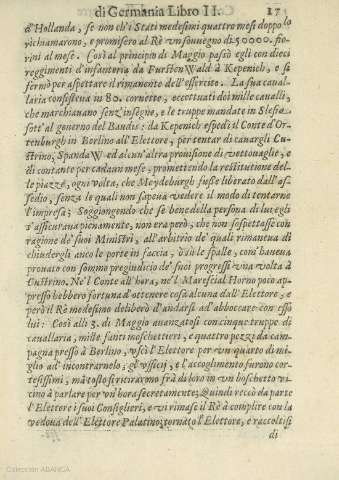 di Germania Libro II.
d'Hollanda, se non ch'i Stati medesimi quattro mesi doppo lo
richiamarono, e promisero al Rè vn souuegno di 50000. fio-
rini al mese. Così al principio di Maggio passò egli con dieci
reggimenti d'infanteria da Fursten Wald à Kepenich, e si
fermò per aspettare il rimanente dell'essercito. La sua caual-
laria consisteua in 80. cornette, eccettuati dei mille caualli,
che marchiauano senz'insegne, e le truppe mandate in Slesia
sotto'l gouerno del Baudis: da Kepenich espedì il Conte d'Or-
tenburgh in Borlino all'Elettore, per tentar di cauargli Cu-
strino, SpandaW ed alcun'altra prouisione di vettouaglie, e
di contante per cadaun mese, promettendo la restitutione del-
le piazze, ogni volta, che Meydeburgh fusse liberato dall'as-
sedio, senza le quali non sapeua vedere il modo di tentarne
l'impresa; Soggiongendo che se bene della persona di lui egli
s'assicuraua pienamente, non era però, che non sospettasse con
ragione de' suoi Ministri, all'arbitrio de' quali rimaneua di
chiudergli anco le porte in faccia, ò sù le spalle, com'haueua
prouato con sommo pregiudicio de' suoi progressi vna volta à
Custrino. Ne'l Conte all'hora, ne'l Marescial Horno poco ap-
presso hebbero fortuna d'ottenere cosa alcuna dall'Elettore, e
però il Rè medesimo deliberò d'andarsi ad abboccar con esso
lui: Così alli 3. di Maggio auanzatosi con cinque truppe di
cauallaria, mille fanti moschettieri, e quattro pezzi da cam-
pagna presso à Borlino, vscì l'Elettore per vn quarto di mi-
glio ad incontrarnelo; gl'vfficij, e l'accoglimento furono cor-
tesissimi, mà tosto si ritirarono frà di loro in vn boschetto vi
cino à parlare per vn'hora secretamente; Quindi reccò da parte
l'Elettore i suoi Consiglieri, e vi rimase il Rè à complire con la
vedoua dell'Elettore Palatino; tornato l'Elettore, e raccoltisi
di
Colección ABANCA